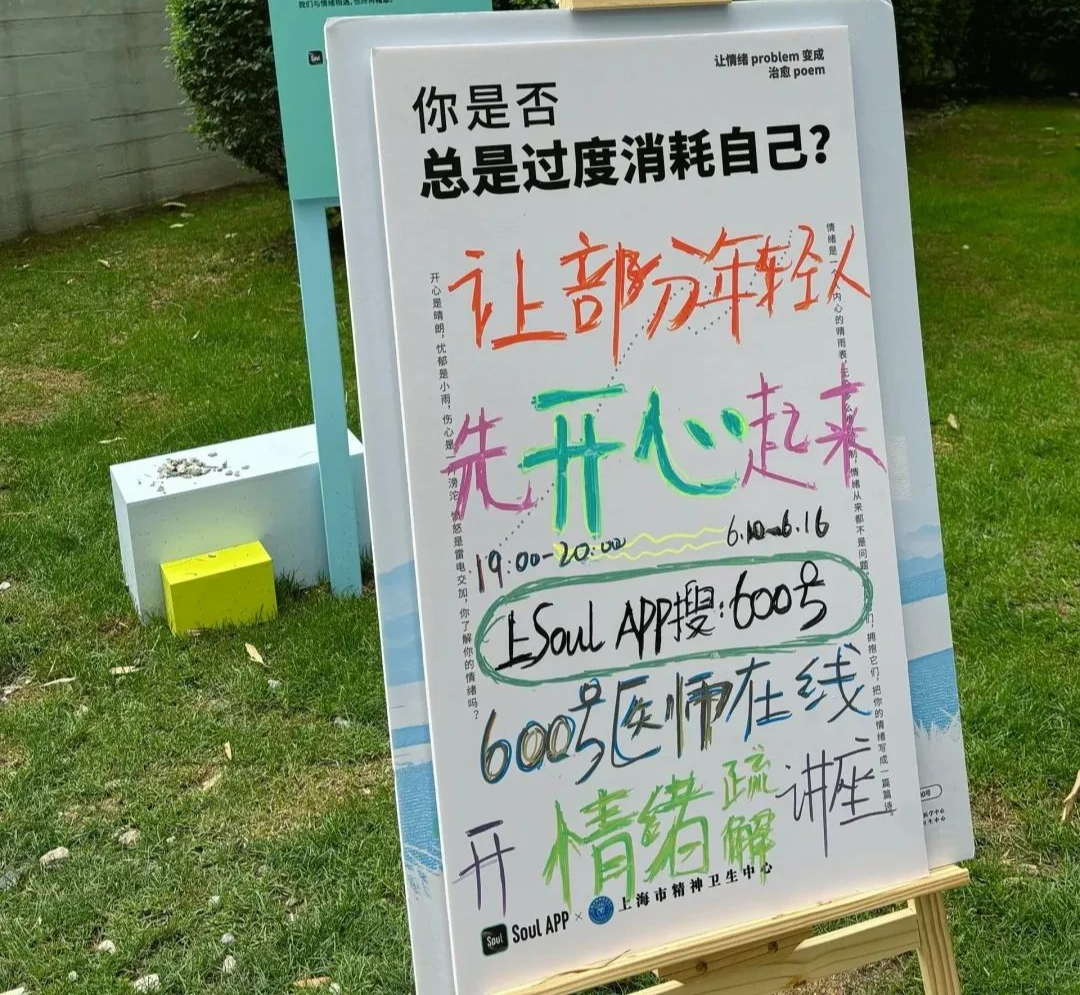 我们与情绪相遇,也终将释怀。
Soul
让情绪 problem 变成
治愈 poem
你是否
总是过度消耗自己?
让部分年轻人
先开心起来
19:00-20:00 6.10-6.16
上Soul APP搜:600号
600号医师在线
开情绪疏解讲座
开心是晴朗,忧郁是小雨,伤心是
滂沱
愤怒是雷电交加,你了解你的情绪吗?
情绪是一个
内心的晴雨表,
情绪从来都不是问题
拥抱它们,把你的情绪写成一篇篇诗。
Soul
Soul APP × 上海市精神卫生中心